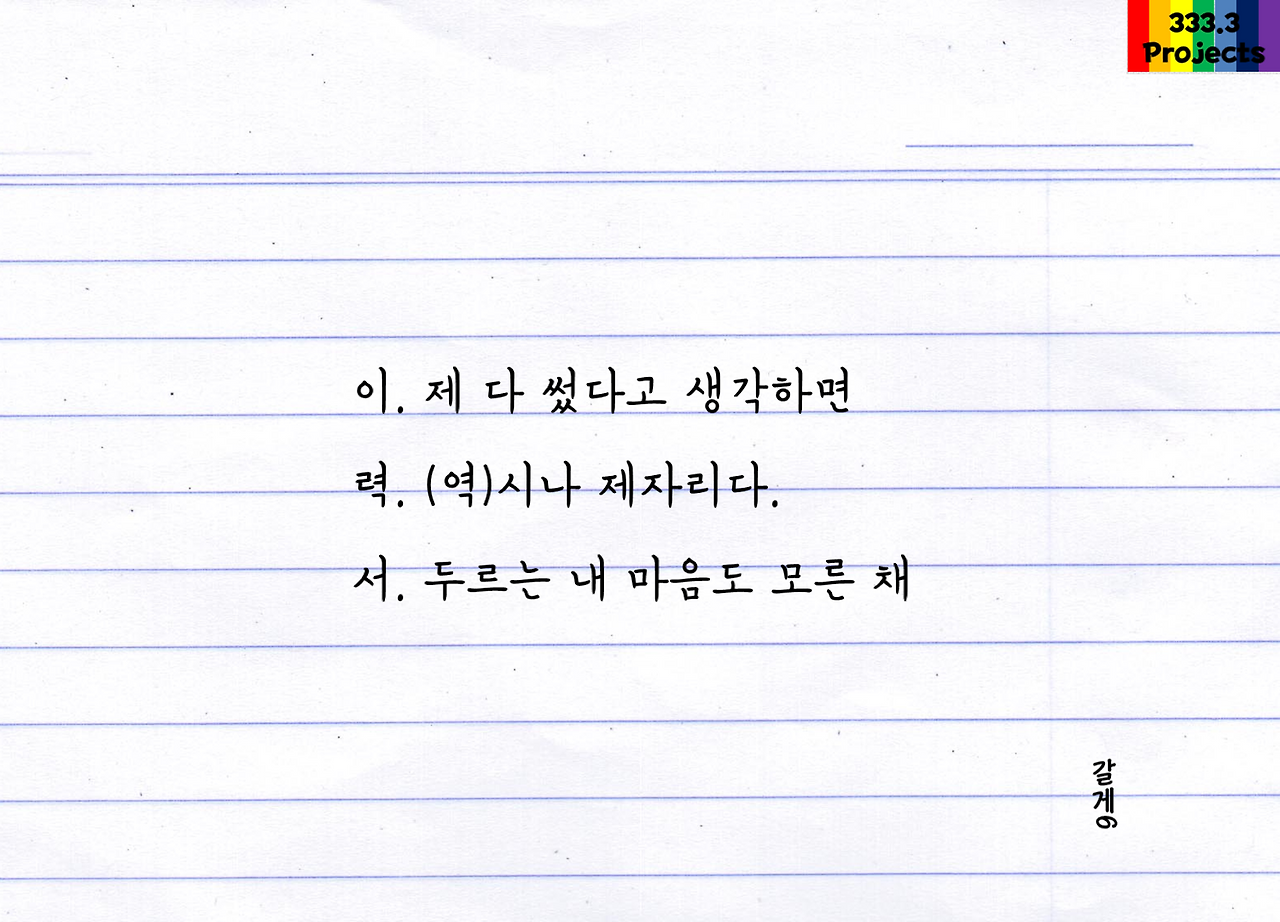 333.3
Projects
이. 제 다 썼다고 생각하면
력. (역)시나 제자리다.
서. 두르는 내 마음도 모른 채
갈게6